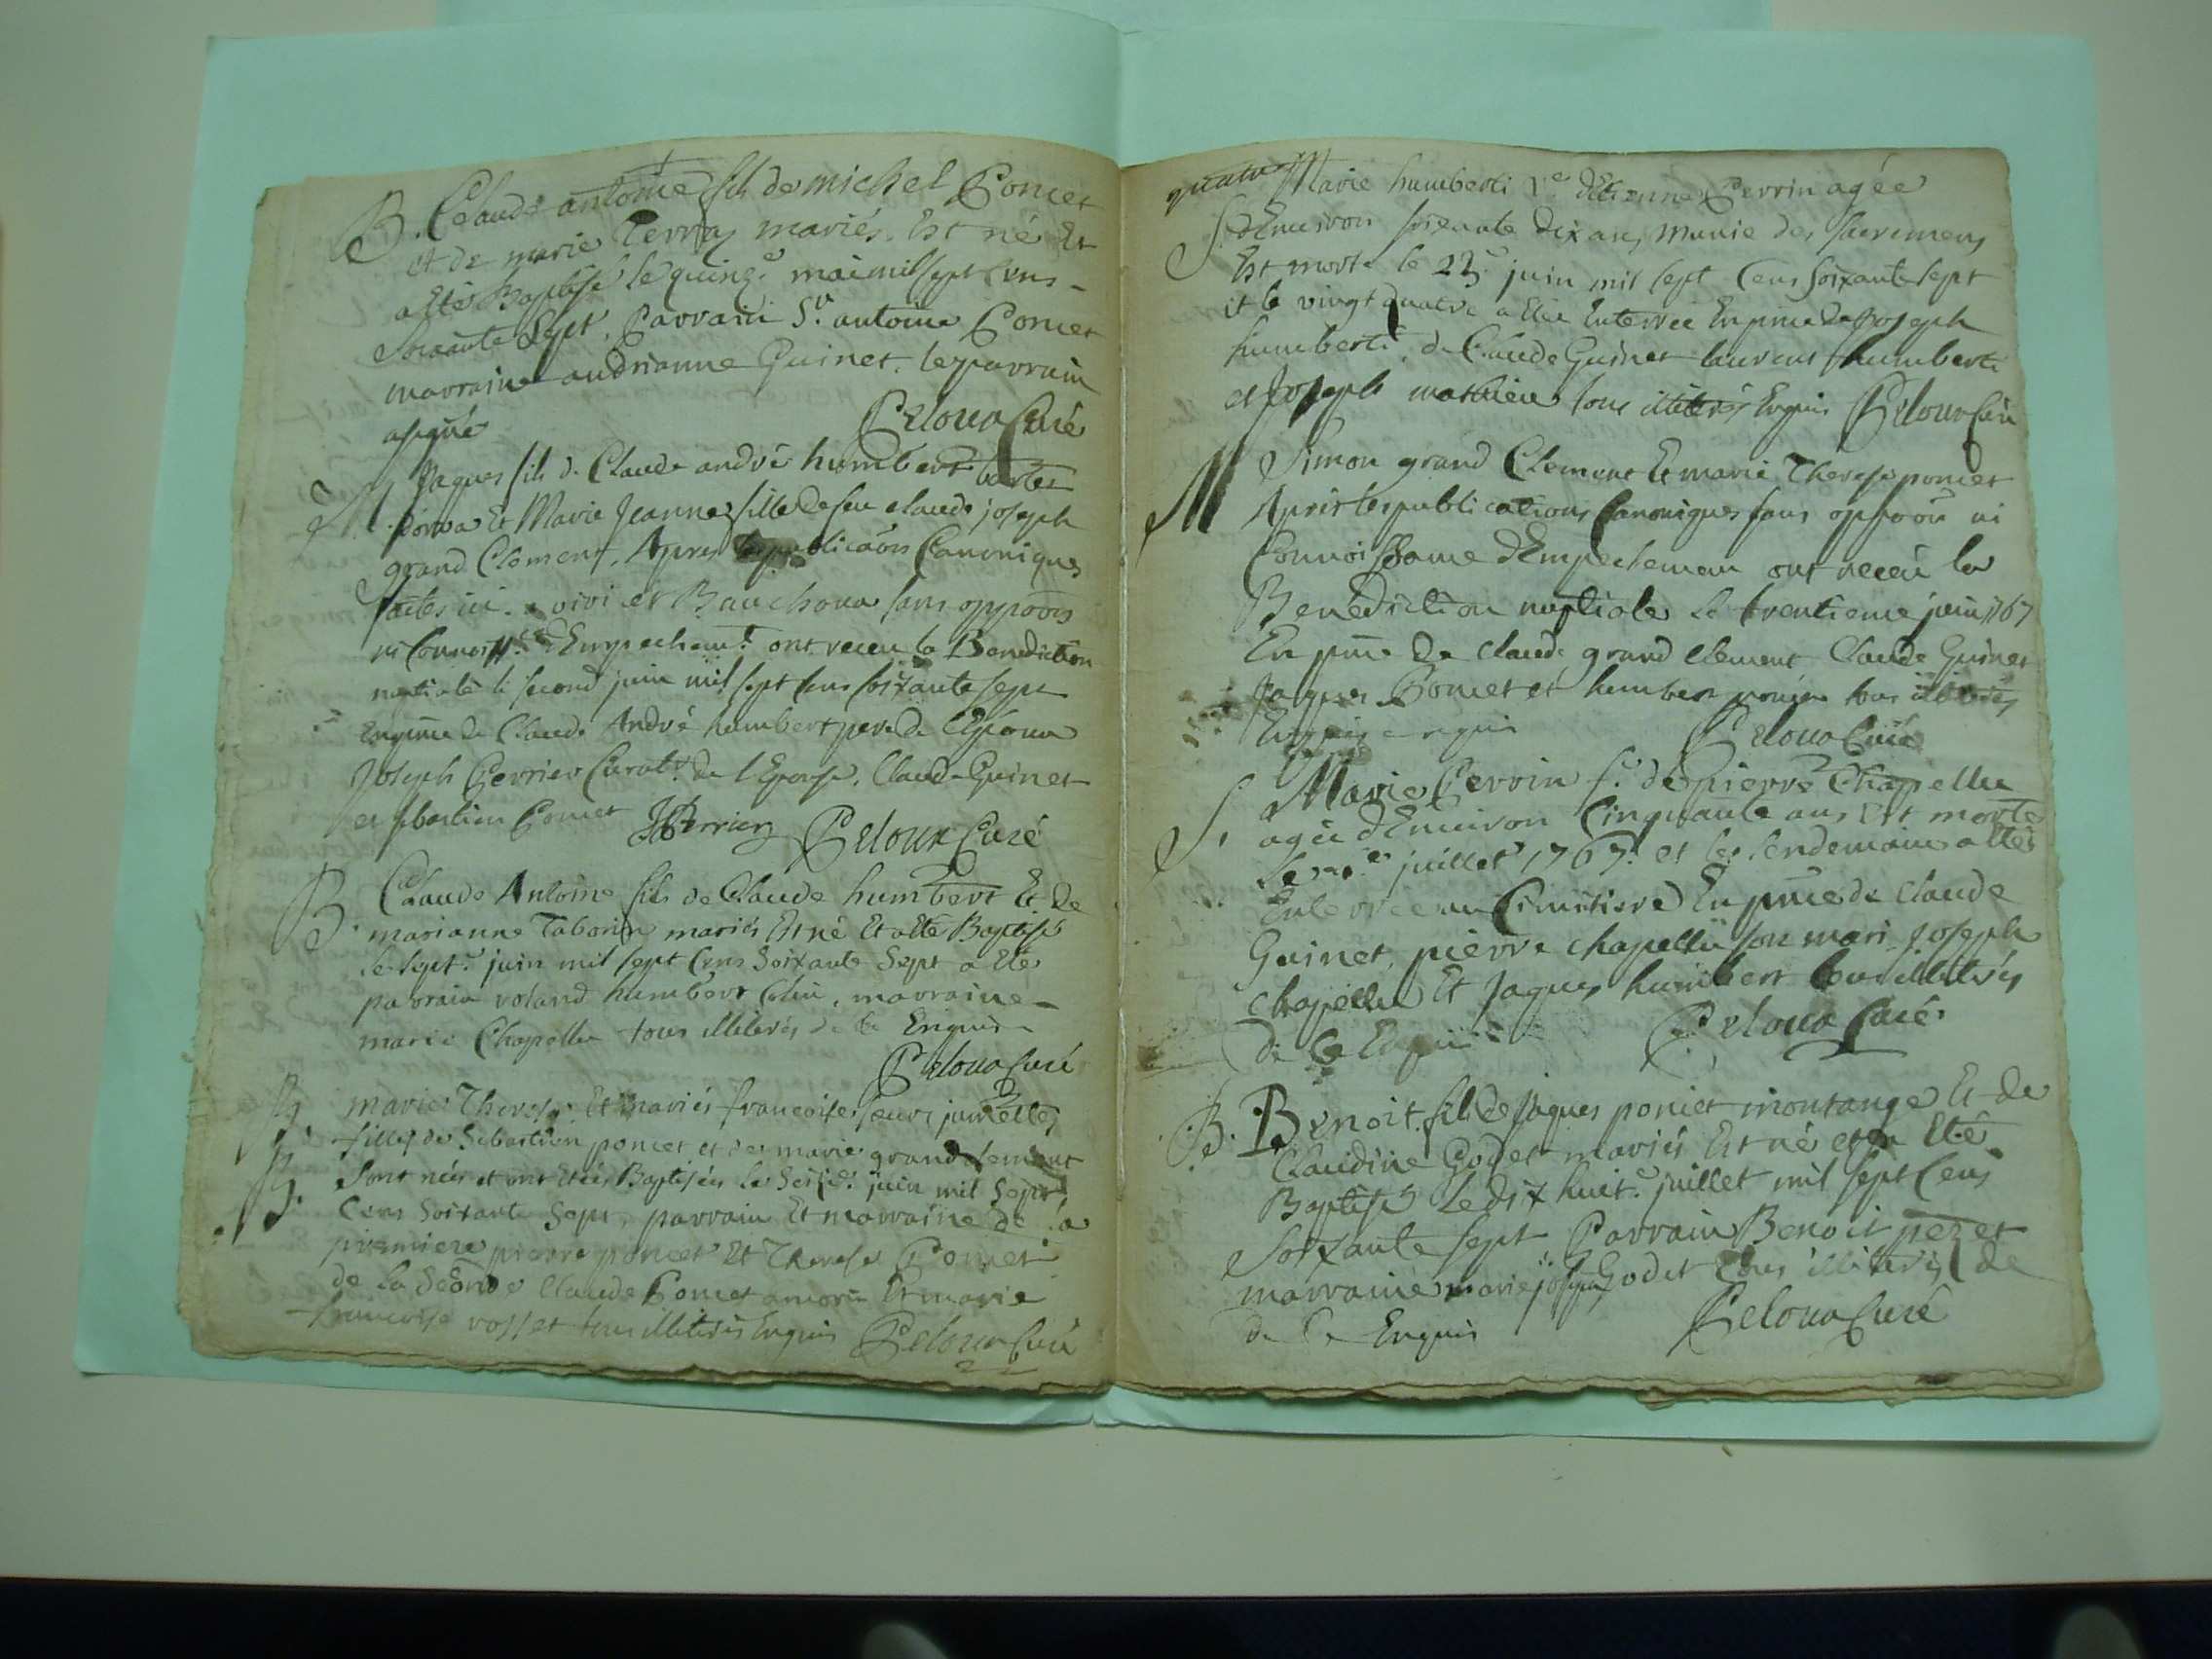 B. Claude antoine fils de michel Poncet
et de marie Terraz mariés. Est né Et
a Eté Baptisé le quinz.e mai mil sept Cens
Soixante Sept. Parrain S.r antoine Poncet
marraine andrianne Guinet. le parrain
a signé Peloux Curé
M. Jaques fils de Claude andre humbert
et Marie Jeanne fille de feu claude joseph
grand Clement. Apres les publicaôns Canoniques
faites ici. a viri et Bauchoux sans oppoôns
ni Connoiss.ce d'Empechem.t ont receu la Benediction
nuptiale le second juin mil sept cens soixante sept
En pnce de Claude André humbert pere de l'Epoux
Joseph Perrier Curat.r de l'Epouse. Claude Guinet
et sebastien Poncet JPerrier Peloux Curé
B. Claude Antoine fils de Claude humbert Et de
marianne Taborin mariés Est né Et a Eté Baptisé
le sept.e juin mil sept Cens Soixante Sept a Eté
parrain roland humbert, marraine
marie Chapellu tous illiterés de ce Enquis
Peloux Curé
B. marie Therese Et marie francoise soeurs jumelles
B. filles de Sebastien poncet et de marie grand clement
Sont nées et ont Etées Baptisées le Seizi.e juin mil Sept
Cens Soixante Sept, parrain Et marraine de la
premiere pierre poncet Et Therese Poncet
de la Seconde Claude Poncet Et marie
francoise rosset tous illiterés Enquis Peloux Curé
quatre
Marie humbert V.e d'Etienne Perrin agée
S. d'Environ soixante dix ans munie des sacremens
Est morte le 23.e juin mil sept Cens soixante sept
et le vingt quatre a Etée Enterrée En pnce de Joseph
humbert, de Claude Guinet laurent humbert
et Joseph mathieu tous illiterés Enquis Peloux Curé
M Simon grand Clement Et marie Therese poncet
Après les publications Canoniques sans oppoôn ni
Connoissance d'Empechement ont receu la
Benediction nuptiale le trentieme juin 1767
En pnce de Claude grand Clement Claude Guinet
Jaques Poncet et humbert poncet tous illiterés
Enquis Peloux Curé
S. Marie Perrin f.e de pierre Chapellu
agée d'Environ Cinquante ans Est morte
le juillet 1767. et le lendemain a Etée
Enterrée au Cimitiere En pnce de Claude
Guinet, pierre chapellu son mari Joseph
chapellu Et Jaques humbert tous illiterés
de ce Enquis Peloux Curé
B. Benoit fils de Jaques poncet montange Et de
Claudine Godet mariés Est né et a Eté
Baptisé le dix huit.e juillet mil sept Cens
Soixante sept Parrain Benoit perret
marraine marie josephe Godet tous illiterés de
de Ce Enquis Peloux Curé